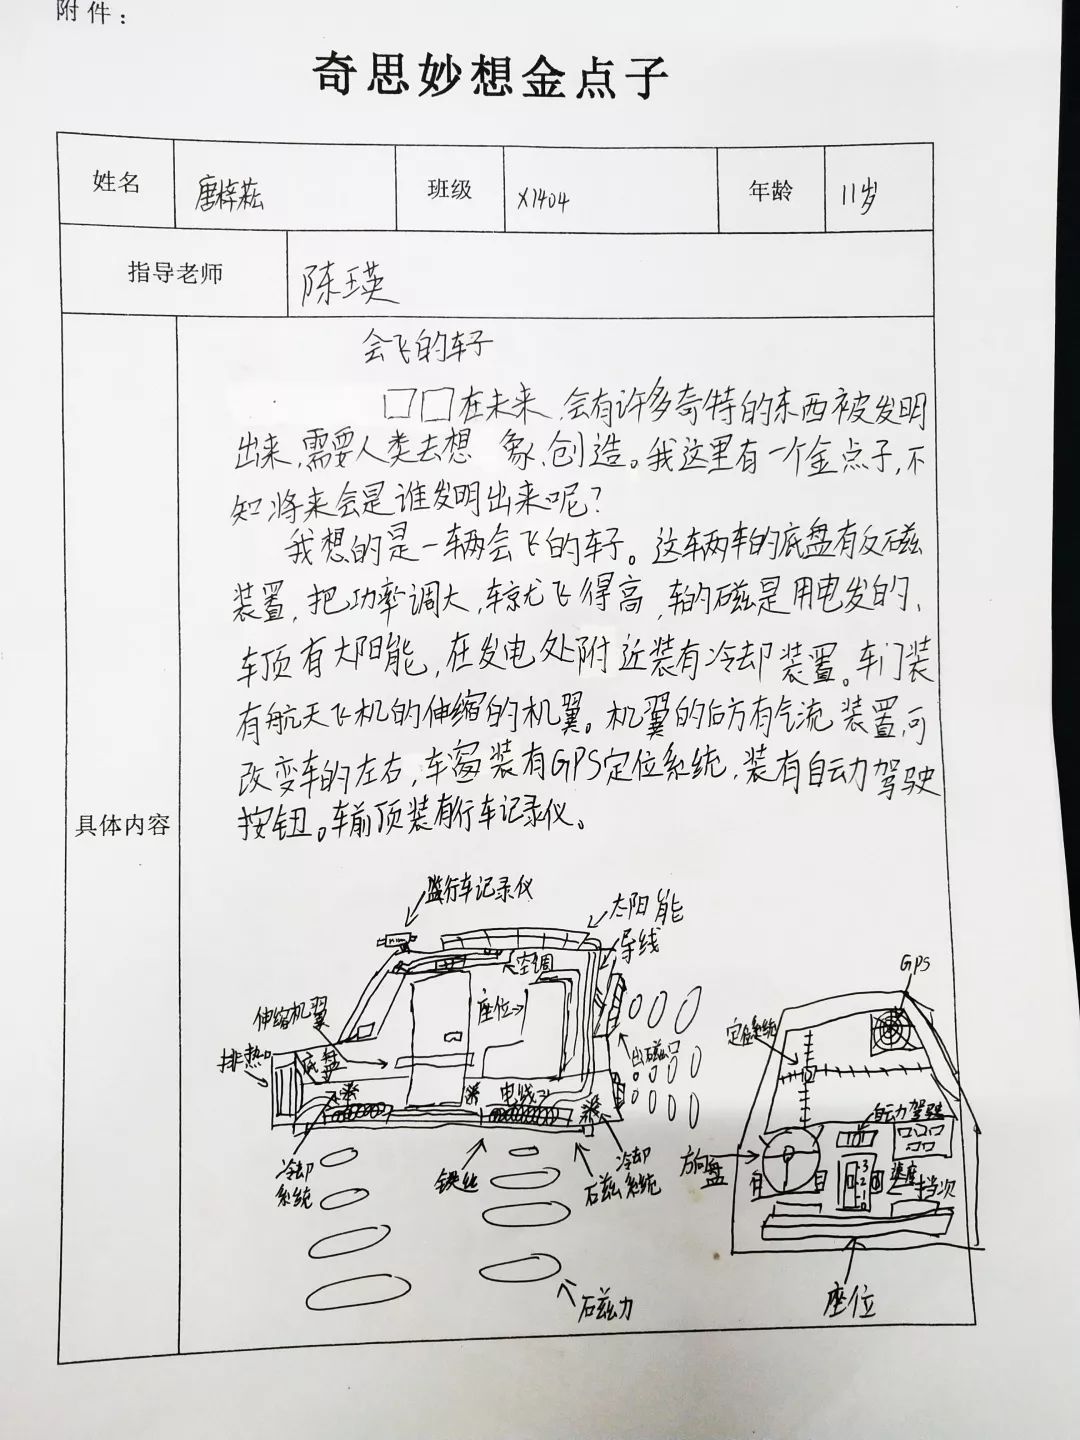 附件：
奇思妙想金点子
姓名 唐梓菘 班级 X1404 年龄 11岁
指导老师 陈瑛
具体内容
会飞的车子
□□在未来，会有许多奇特的东西被发明
出来，需要人类去想 象、创造。我这里有一个金点子，不
知将来会是谁发明出来呢？
我想的是一辆会飞的车子。这辆车的底盘有反磁
装置，把功率调大，车就飞得高，车的磁是用电发的、
车顶有太阳能，在发电处附近装有冷却装置。车门装
有航天飞机的伸缩的机翼。机翼的后方有气流装置，可
改变车的左右，车窗装有GPS定位系统，装有自动驾驶
按钮。车前顶装有行车记录仪。
行车记录仪
太阳能
导线
空调
座位
伸缩机翼
排热口
底盘
出磁口
电线
冷却系统
铁丝
磁
冷却系统
磁力
GPS
定位系统
自动驾驶
方向盘
速度
挡次
3
2
1
0
座位